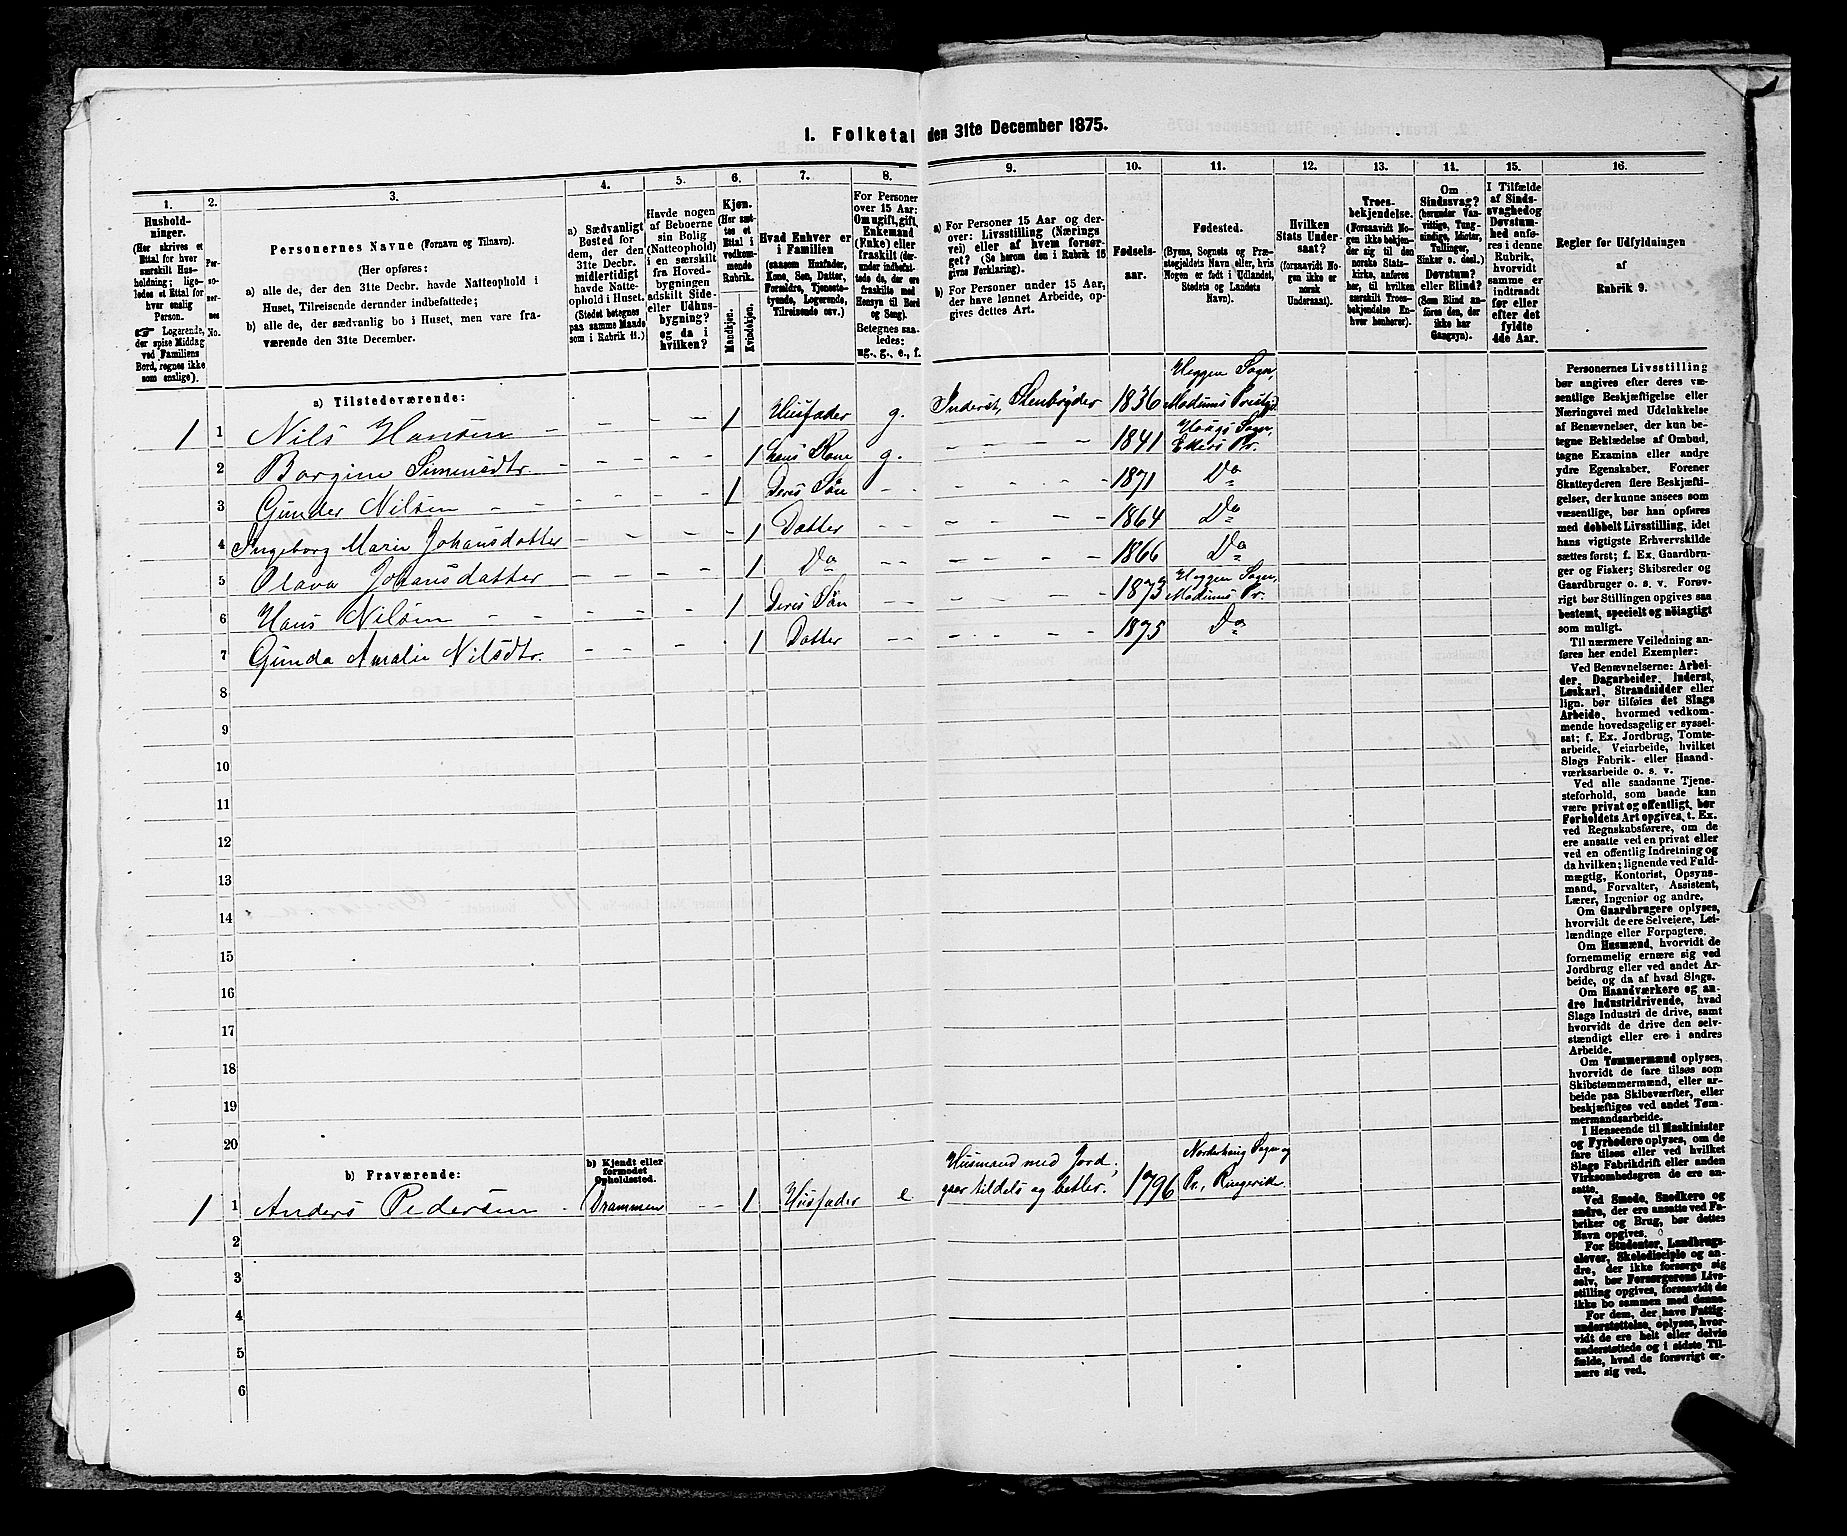 1. Folketal den 31te December 1875.
1. 2. 3. 4. 5. 6. 7. 8. 9. 10. 11. 12. 13. 14. 15. 16.
Hushold-
ninger.
(Her skrives et
Ettal for hver
særskilt Hus-
holdning; lige-
ledes et Ettal for
hver enslig
Person.
☞ Logerende,
der spise Middag
ved Familiens
Bord, regnes ikke
som enslige).
Per-
so-
ner-
nes
No.
Personernes Navne (Fornavn og Tilnavn).
(Her opføres:
a) alle de, der den 31te Decbr. havde Natteophold i
Huset, Tilreisende derunder indbefattede;
b) alle de, der sædvanlig bo i Huset, men vare fra-
værende den 31te December.
a) Sædvanligt
Bosted for
dem, der den
31te Decbr.
midlertidigt
havde Natte-
ophold i Huset.
(Stedet betegnes
paa samme Maade
som i Rubrik 11.)
Havde nogen
af Beboerne
sin Bolig
(Natteophold)
i en særskilt
fra Hoved-
bygningen
adskilt Side-
eller Udhus-
bygning?
og da i
hvilken?
Kjøn.
(Her sæt-
tes et
Ettal i
vedkom-
mende
Rubrik.
Mandkjøn.
Kvindekjøn.
Hvad Enhver er
i Familien
(saasom Husfader,
Kone, Søn, Datter,
Forældre, Tjeneste-
tyende, Logerende,
Tilreisende osv.)
For Personer
over 15 Aar:
Om ugift, gift,
Enkemand
(Enke) eller
fraskilt (der-
under indbefat-
tede de, der ere
fraskilte med
Hensyn til Bord
og Seng).
Betegnes saa-
ledes:
ug., g., e., f.
a) For Personer 15 Aar og der-
over: Livsstilling (Nærings-
vei) eller af hvem forsør-
get? (Se herom den i Rubrik 16
givne Forklaring).
b) For Personer under 15 Aar,
der have lønnet Arbeide, op-
gives dettes Art.
Fødsels-
aar.
Fødested.
(Byens, Sognets og Præ-
stegjeldets Navn, eller, hvis
Nogen er født i Udlandet,
Stedets og Landets
Navn).
Hvilken
Stats Under-
saat?
(forsaavidt No-
gen ikke er
norsk
Undersaat).
Troes-
bekjendelse.
(Forsaavidt No-
gen ikke bekjen-
der sig til den
norske Stats-
kirke, anføres
her, til hvilken
særskilt Troes-
bekjendelse En-
hver henhører).
Om
Sindssvag?
(herunder Van-
vittige, Tung-
sindige, Idioter,
Tullinger,
Sinker o. desl.)
Døvstum?
eller Blind?
(Som Blind an-
føres den, der
ikke har
Gangsyn).
I Tilfælde
af Sinds-
svaghed og
Døvstum-
hed anfø-
res i denne
Rubrik,
hvorvidt
samme er
indtraadt
før eller
efter det
fyldte
4de Aar.
Regler for Udfyldningen
af
Rubrik 9.
a) Tilstedeværende:
1 1 Nils Hansen - - - 1 Husfader g. Inderst, Stenbryder 1836 Heggen Sogn, Modums Prestgj.
2 Borgine Simensdtr. - - - 1 hans Kone g. - - - 1841 Haugs Sogn, Ekers Pr.
3 Gunder Nilsen - - - 1 Deres Søn - - - 1871 Do
4 Ingeborg Marie Johansdatter - - - 1 Datter - - - 1864 Do
5 Olava Johansdatter - - - 1 Do - - - 1866 Do
6 Hans Nilsen - - - 1 Deres Søn - - - 1873 Heggen Sogn, Modums Pr.
7 Gunda Amalie Nilsdtr. - - - 1 Datter - - - 1875 Do
8
9
10
11
12
13
14
15
16
17
18
19
20
b) Fraværende:
b) Kjendt eller
formodet
Opholdssted.
1 1 Anders Pedersen - Drammen - - 1 Husfader e Husmand med Jord, gaar tildels og betler. 1796 Norderhoug Sogn og Pr., Ringerike.
2
3
4
5
6
Personernes Livsstilling
bør angives efter deres væ-
sentlige Beskjæftigelse eller
Næringsvei med Udelukkelse
af Benævnelser, der kun be-
tegne Beklædelse af Ombud,
tagne Examina eller andre
ydre Egenskaber. Forener
Skatteyderen flere Beskjæfti-
gelser, der kunne ansees som
væsentlige, bør han opføres
med dobbelt Livsstilling, idet
hans vigtigste Erhvervskilde
sættes først; f. Ex. Gaardbru-
ger og Fisker; Skibsreder og
Gaardbruger o. s. v. Forøv-
rigt bør Stillingen opgives saa
bestemt, specielt og nøiagtigt
som muligt.
Til nærmere Veiledning an-
føres her endel Exempler:
Ved Benævnelserne: Arbei-
der, Dagarbeider, Inderst,
Løskarl, Strandsidder eller
lign. bør tilføies det Slags
Arbeide, hvormed vedkom-
mende hovedsagelig er syssel-
sat; f. Ex. Jordbrug, Tomte-
arbeide, Veiarbeide, hvilket
Slags Fabrik- eller Haand-
værksarbeide o. s. v.
Ved alle saadanne Tjene-
steforhold, som baade kan
være privat og offentligt, bør
Forholdets Art opgives, t. Ex.
ved Regnskabsførere, om de
ere ansatte ved en privat eller
ved en offentlig Indretning og
da hvilken; lignende ved Fuld-
mægtig, Kontorist, Opsyns-
mand, Forvalter, Assistent,
Lærer, Ingeniør og andre.
Om Gaardbrugere oplyses,
hvorvidt de ere Selveiere, Lei-
lændinge eller Forpagtere.
Om Husmænd, hvorvidt de
fornemmelig ernære sig ved
Jordbrug eller ved andet Ar-
beide, og da af hvad Slags.
Om Haandværkere og an-
dre Industridrivende, hvad
Slags Industri de drive, samt
hvorvidt de drive den selv-
stændigt eller ere i andres
Arbeide.
Om Tømmermænd oplyses,
hvorvidt de fare tilsøs som
Skibstømmermænd, eller ar-
beide paa Skibsværfter, eller
beskjæftiges ved andet Tøm-
mermandsarbeide.
I Henseende til Maskinister
og Fyrbødere oplyses, om de
fare tilsøs eller ved hvilket
Slags Fabrikdrift eller anden
Virksomhedsgren de ere an-
satte.
Ved Smede, Snedkere og
andre, der ere ansatte ved Fa-
briker og Brug, bør dettes
Navn opgives.
For Studenter, Landbrugs-
elever, Skoledisciple og an-
dre, der ikke forsørge sig
selv, bør Forsørgerens Livs-
stilling opgives, forsaavidt de
ikke bo sammen med denne.
For dem, der have Fattig-
understøttelse, oplyses, hvor-
vidt de ere helt eller delvis
understøttede og i sidste Til-
fælde, hvad de forøvrigt er-
nære sig ved.